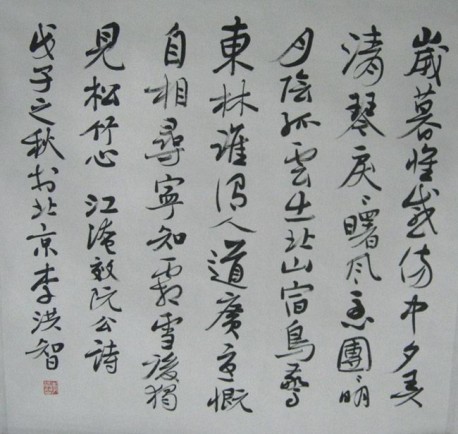 歲暮懷感傷中夕弄
清琴戾々曙风急團々明
月陰孤雲出北山宿鳥驚
東林誰謂人道廣憂慨
自相尋寧知霜雪後獨
見松竹心 江淹效阮公詩
戊子之秋於北京李洪智